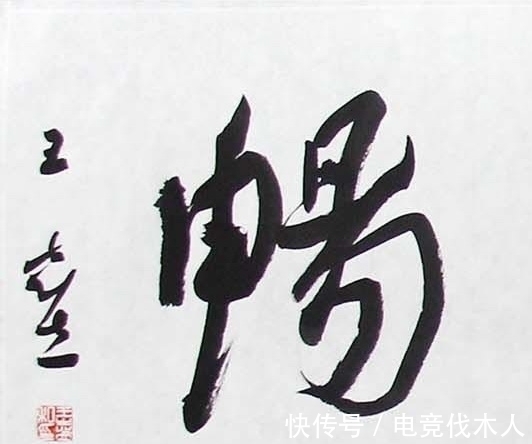 暢
王
快传号 / 电竞伐木人